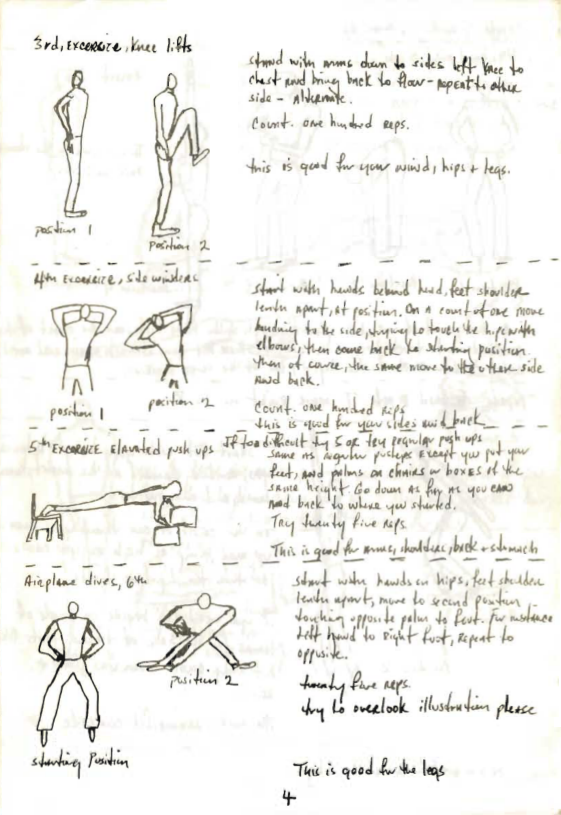 3rd, EXCERSIZE, Knee lifts
stand with arms down to sides left knee to
chest and bring back to floor - repeat to other
side - Alternate.
Count. one hundred reps.
this is good for your wind, hips + legs.
position 1
position 2
4th EXCERSIZE, side winders
start with hands behind head, feet shoulder
lenth apart, at position. On a count of one move
to the side, trying to touch the hip with
elbows, then come back to starting position.
then of course, the same move to the other side
and back.
Count. one hundred reps
this is good for your sides and back
position 1
position 2
5th EXCERSIZE Elevated push ups
If too difficult try 5 or try regular push ups
same as regular pushups except you put your
feet, and palms on chairs or boxes of the
same height. Go down as far as you can
and back to where you started.
Try twenty five reps.
This is good for arms, shoulders, back + stomach
Airplane dives, 6th
start with hands on hips, feet shoulder
lenth apart, move to second position
touching opposite palm to foot. for instance
left hand to right foot, repeat to
opposite.
twenty five reps.
try to overlook illustration please
position 2
starting Position
This is good for the legs
4